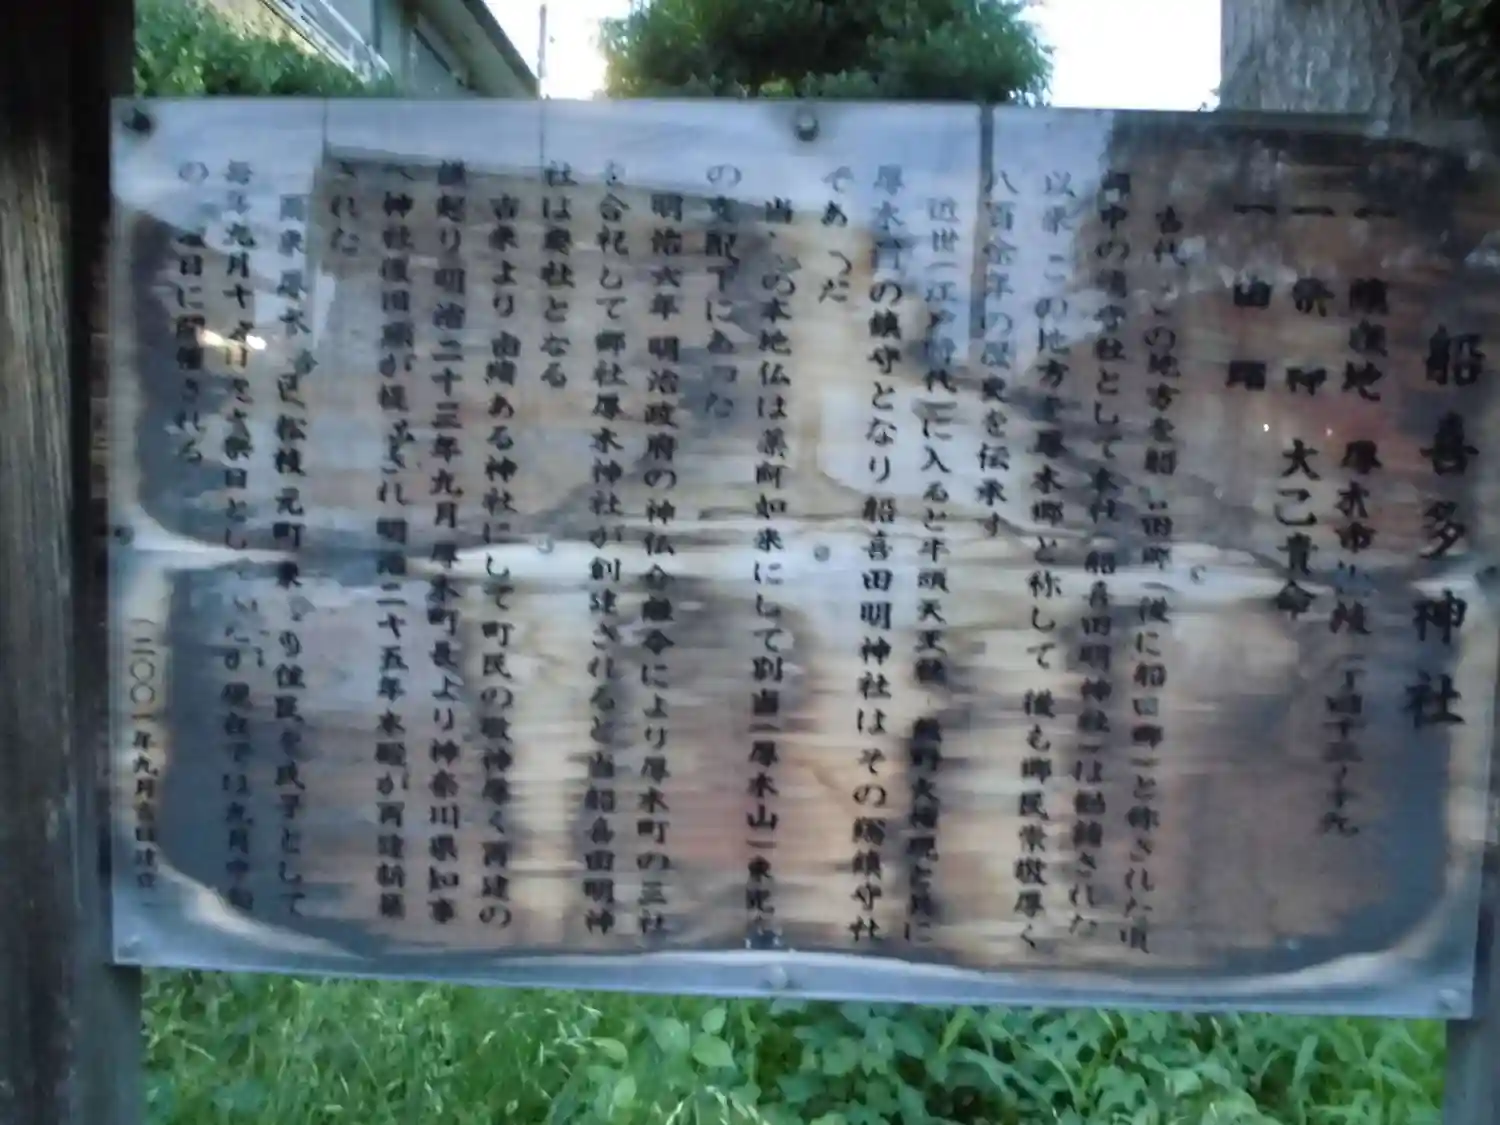 船喜多神社
一 鎮座地 厚木市松枝一丁目十三ノ十九
一 祭神 大己貴命
一 由緒
古代 この地方を船田町(後に船田郷)と称された頃
郷中の鎮守社として本社 船喜田明神社は勧請された
以来 この地方を厚木郷と称して 後も郷民崇敬厚く
八百余年の歴史を伝承す
近世(江戸時代)に入ると牛頭天王社 熊野大権現と共に
厚木村の鎮守となり船喜田明神社はその総鎮守社
であった
当 の本地仏は薬師如来にして別当 厚木山 東光
の支配下にあった
明治六年 明治政府の神仏分離令により厚木町の三社
を合祀して郷社厚木神社が創建されると当船喜田明神
社は廃社となる
古来より由緒ある神社にして町民の敬神厚く再建の
議起り明治二十三年九月厚木町長より神奈川県知事
へ神社復旧願が提出され 明治二十五年本殿が再建新築
された
爾来厚木 区 松枝 元町 東 の住民を氏子として
毎年九月十 日 祭日とし が現在では九月
の 曜日に開催される
(二〇〇一年九月吉日建立)